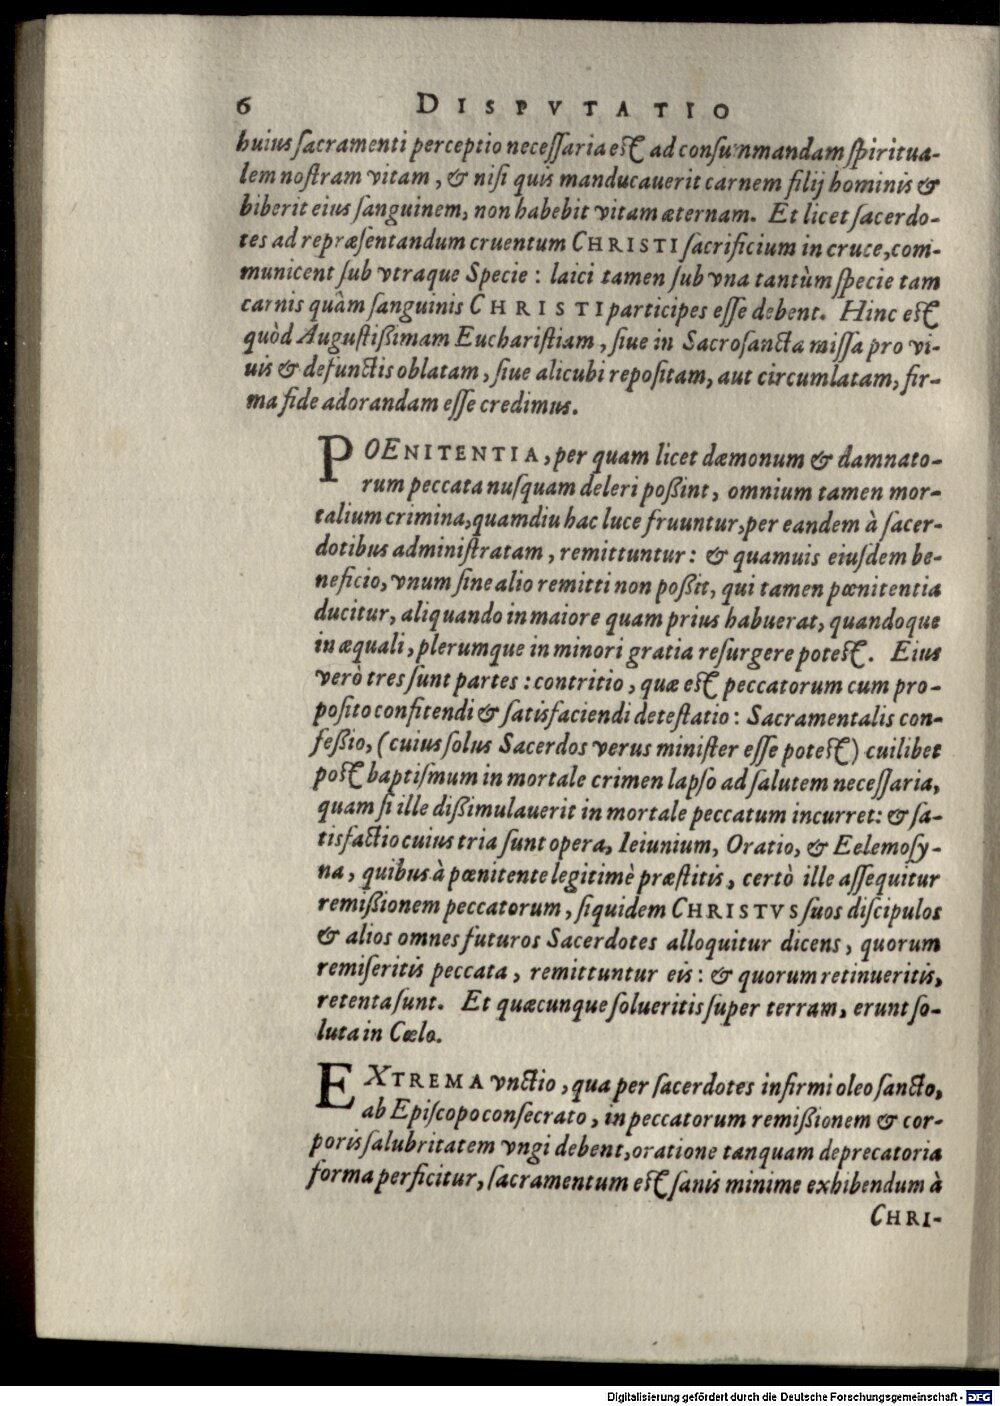 6 DISPVTATIO
huius ſacramenti perceptio neceſſaria eſt ad conſummandam ſpiritua-
lem noſtram vitam, & niſi quis manducauerit carnem filij hominis &
biberit eius ſanguinem, non habebit vitam æternam. Et licet ſacerdo-
tes ad repræſentandum cruentum CHRISTI ſacrificium in cruce, com-
municent ſub vtraque Specie: laici tamen ſub vna tantùm ſpecie tam
carnis quàm ſanguinis CHRISTI participes eſſe debent. Hinc eſt
quòd Auguſtißimam Euchariſtiam, ſiue in Sacroſancta miſſa pro vi-
uis & defunctis oblatam, ſiue alicubi repoſitam, aut circumlatam, fir-
ma fide adorandam eſſe credimus.
POENITENTIA, per quam licet dæmonum & damnato-
rum peccata nuſquam deleri poßint, omnium tamen mor-
talium crimina, quamdiu hac luce fruuntur, per eandem à ſacer-
dotibus adminiſtratam, remittuntur: & quamuis eiuſdem be-
neficio, vnum ſine alio remitti non poßit, qui tamen pœnitentia
ducitur, aliquando in maiore quam prius habuerat, quandoque
in æquali, plerumque in minori gratia reſurgere poteſt. Eius
verò tres ſunt partes: contritio, quæ eſt peccatorum cum pro-
poſito confitendi & ſatisfaciendi deteſtatio: Sacramentalis con-
feßio, (cuius ſolus Sacerdos verus miniſter eſſe poteſt) cuilibet
poſt baptiſmum in mortale crimen lapſo ad ſalutem neceſſaria,
quam ſi ille dißimulauerit in mortale peccatum incurret: & ſa-
tisfactio cuius tria ſunt opera, Ieiunium, Oratio, & Eelemoſy-
na, quibus à pœnitente legitimè præſtitis, certò ille aſſequitur
remißionem peccatorum, ſiquidem CHRISTVS ſuos diſcipulos
& alios omnes futuros Sacerdotes alloquitur dicens, quorum
remiſeritis peccata, remittuntur eis: & quorum retinueritis,
retenta ſunt. Et quæcunque ſolueritis ſuper terram, erunt ſo-
luta in Cœlo.
EXTREMA vnctio, qua per ſacerdotes infirmi oleo ſancto,
ab Epiſcopo conſecrato, in peccatorum remißionem & cor-
poris ſalubritatem vngi debent, oratione tanquam deprecatoria
forma perficitur, ſacramentum eſt ſanis minime exhibendum à
CHRI-
Digitalisierung gefördert durch die Deutsche Forschungsgemeinschaft - DFG